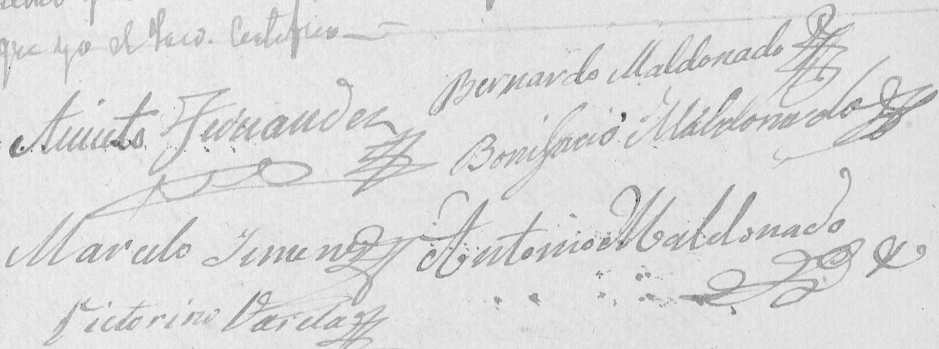 que yo el Srio. Certifico—
Aniceto Fernandez
Bernardo Maldonado
Bonifacio Maldonado
Marcelo Jimenez
Antonio Maldonado
Victorino Varela